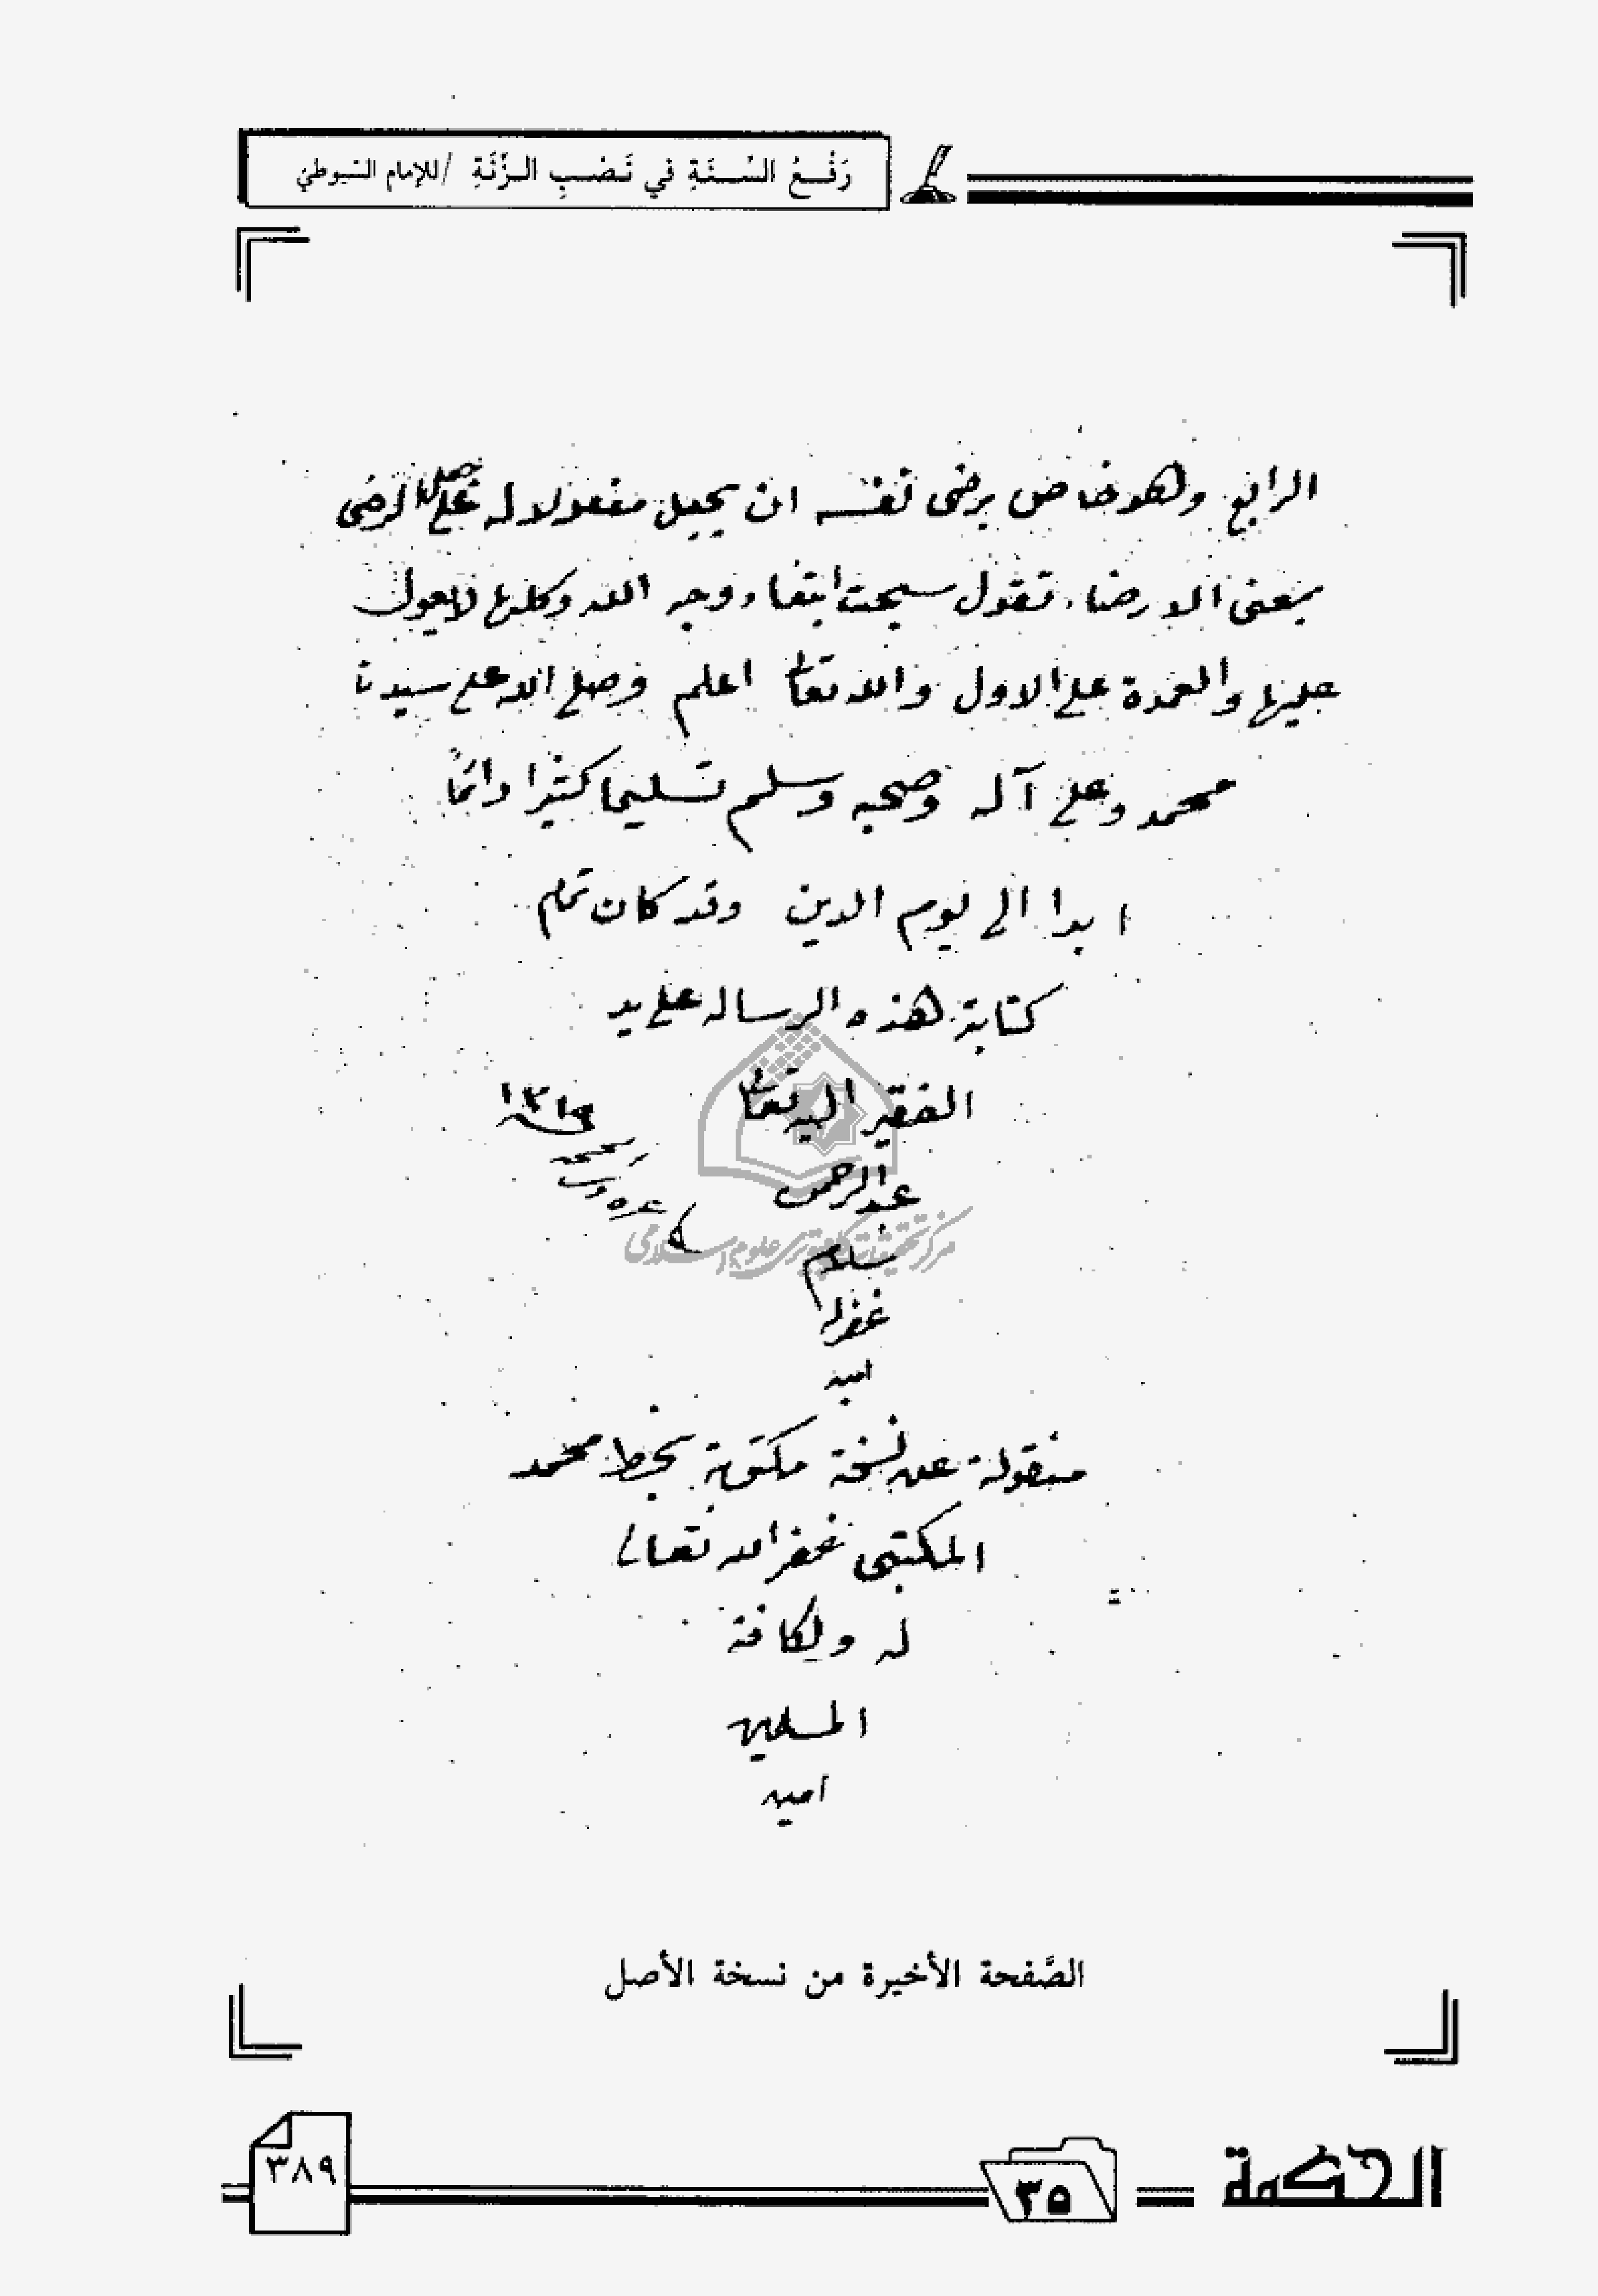 رَفْعُ السُّنَةِ في نَصْبِ الزِّنَةِ / للإمام السّيوطي
الرابع وهو خاص برضى نفسه ان يجعل مفعولا له على الرضى
بمعنى الارضاء تقول سبحت ابتغاء وجه الله وكلها لا يعول
عليها والعمدة على الاول والله تعالى اعلم وصلى الله على سيدنا
محمد وعلى آله وصحبه وسلم تسليما كثيرا دائمًا
ابدا الى يوم الدين وقد كان تمام
كتابة هذه الرساله على يد
الفقير اليه تعالى
عبد الرحمن
سلام
غفر له
امين
منقولة عن نسخة مكتوبة بخط محمد
المكتبي غفر الله تعالى
له ولكافة
المسلمين
امين
مركز تحقيقات كامپيوتری علوم اسلامی
الصَّفحة الأخيرة من نسخة الأصل
الحكمة
٣٥
٣٨٩